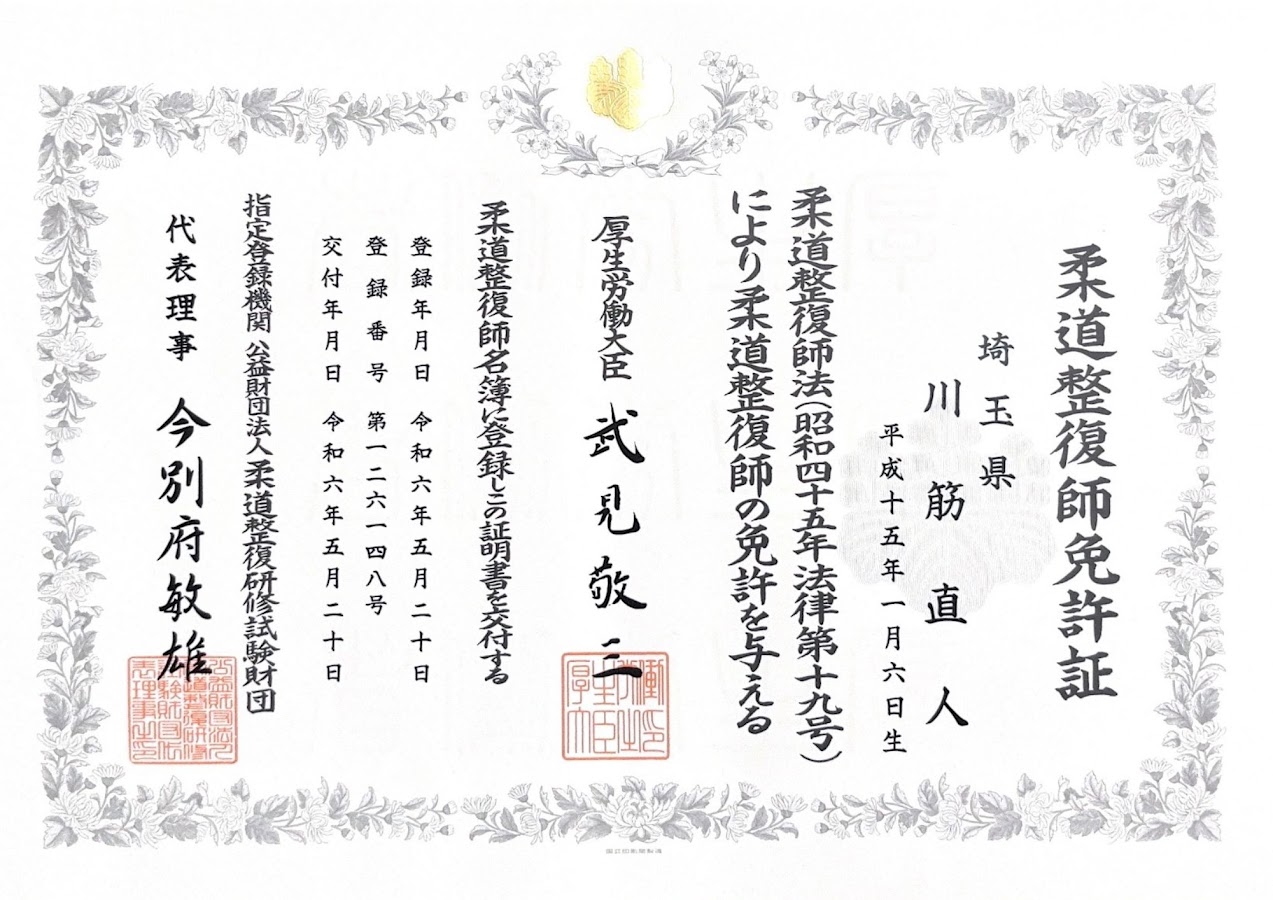 柔道整復師免許証
埼玉県
川筋直人
平成十五年一月六日生
柔道整復師法(昭和四十五年法律第十九号)
により柔道整復師の免許を与える
厚生労働大臣 武見敬三
柔道整復師名簿に登録しこの証明書を交付する
登録年月日 令和六年五月二十日
登録番号 第一二六一四八号
交付年月日 令和六年五月二十日
指定登録機関 公益財団法人柔道整復研修試験財団
代表理事 今別府敏雄